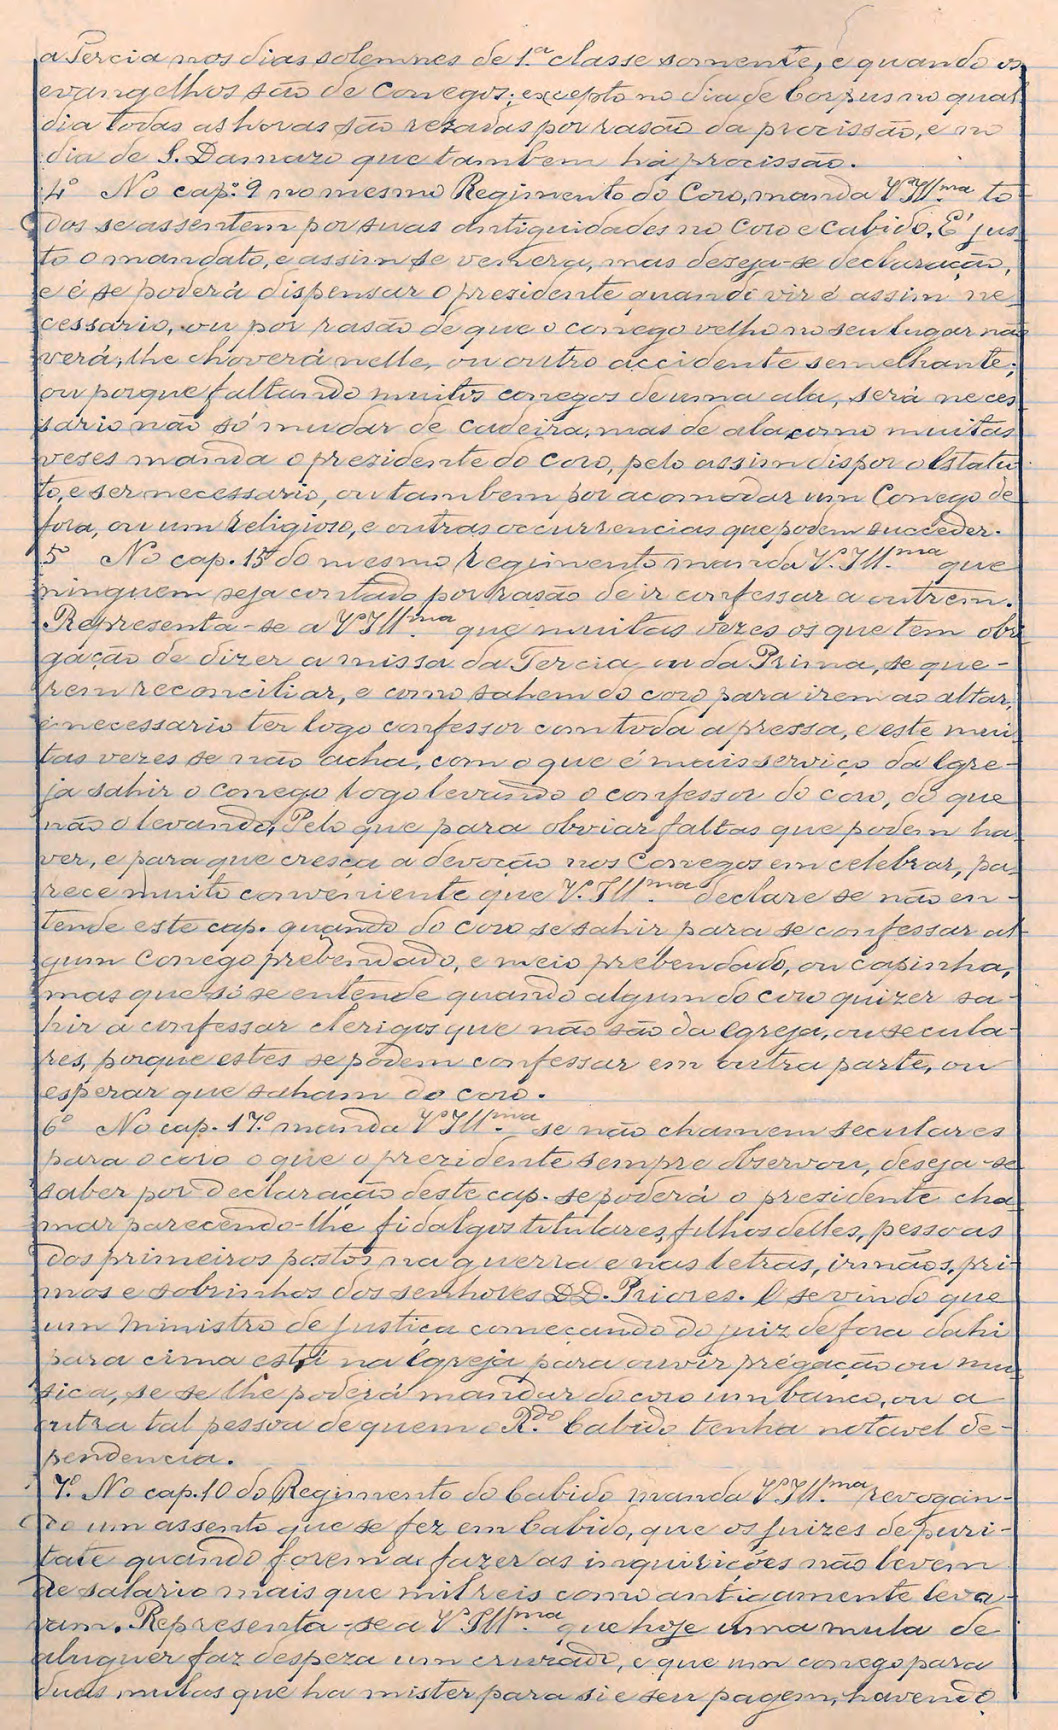 a Tercia nos dias solemnes de 1.ª classe somente, e quando os
evangelhos são de Conegos; excepto no dia de Corpus no qual
dia todas as horas são resadas por rasão da procissão, e no
dia de S. Damazo que tambem há procissão.
4º No cap.º 9 no mesmo Regimento do Coro, manda V. Ill.ma to-
dos se assentem por suas antiguidades no Coro e Cabido. É jus-
to o mandato, e assim se venera, mas deseja-se declaração,
e é se poderá dispensar o prezidente quando vir é assim ne-
cessario, ou por rasão de que o conego velho no seu lugar não
verá, lhe choverá nelle, ou outro accidente semelhante;
ou porque faltando muitos conegos de uma ala, será neces
sario não só mudar de cadeira, mas de ala como muitas
veses manda o prezidente do coro, pelo assim dispor o Estatu
to, e ser necessario, ou tambem por acomodar um Conego de
fora, ou um religioso, e outras occurrencias que podem succeder.
5º No cap. 15 do mesmo regimento manda V. Ill.ma que
ninguem seja contado por rasão de ir confessar a outrem.
Representa-se a V. Ill.ma que muitas vezes os que tem obri
gação de dizer a missa da Tercia, ou da Prima, se que-
rem reconciliar, e como sahem do coro para irem ao altar,
é necessario ter logo confessor com toda a pressa, e este mui
tas vezes se não acha, com o que é mais serviço da Egre-
ja sahir o conego logo levando o confessor do coro, do que
não o levando. Pelo que para obviar faltas que podem ha
ver, e para que cresça a devoção nos Conegos em celebrar, pa-
rece muito conveniente que V. Ill.ma declare se não en-
tende este cap. quando do coro se sahir para se confessar al
gum Conego prebendado, e meio prebendado, ou capinha,
mas que só se entende quando algum do coro quizer sa-
hir a confessar clerigos que não são da Egreja, ou secula-
res, porque estes se podem confessar em outra parte, ou
esperar que saham do coro.
6º No cap. 17.º manda V. Ill.ma se não chamem seculares
para o coro o que o prezidente sempre observou, deseja-se
saber por declaração deste cap. se poderá o presidente cha-
mar parecendo-lhe fidalgos titulares, filhos delles, pessoas
dos primeiros postos na guerra e nas letras, irmãos, pri-
mos e sobrinhos dos senhores D.D. Priores. E se vindo que
um Ministro de justiça começando do juiz de fora dahi
para cima está na Egreja para ouvir prégação ou mu
sica, se se lhe poderá mandar do coro um banco, ou a
outra tal pessoa de quem o R.do Cabido tenha notavel de-
pendencia.
7.º No cap. 10 do Regimento do Cabido manda V. Ill.ma revogan-
do um assento que se fez em Cabido, que os juizes de puri-
tate quando forem a fazer as inquirições não levem
de salario mais que mil reis como antigamente leva-
vam. Representa-se a V. Ill.ma que hoje uma mula de
aluguer faz despeza um cruzado, e que um conego para
duas mulas que ha mister para si e seu pagem, havendo